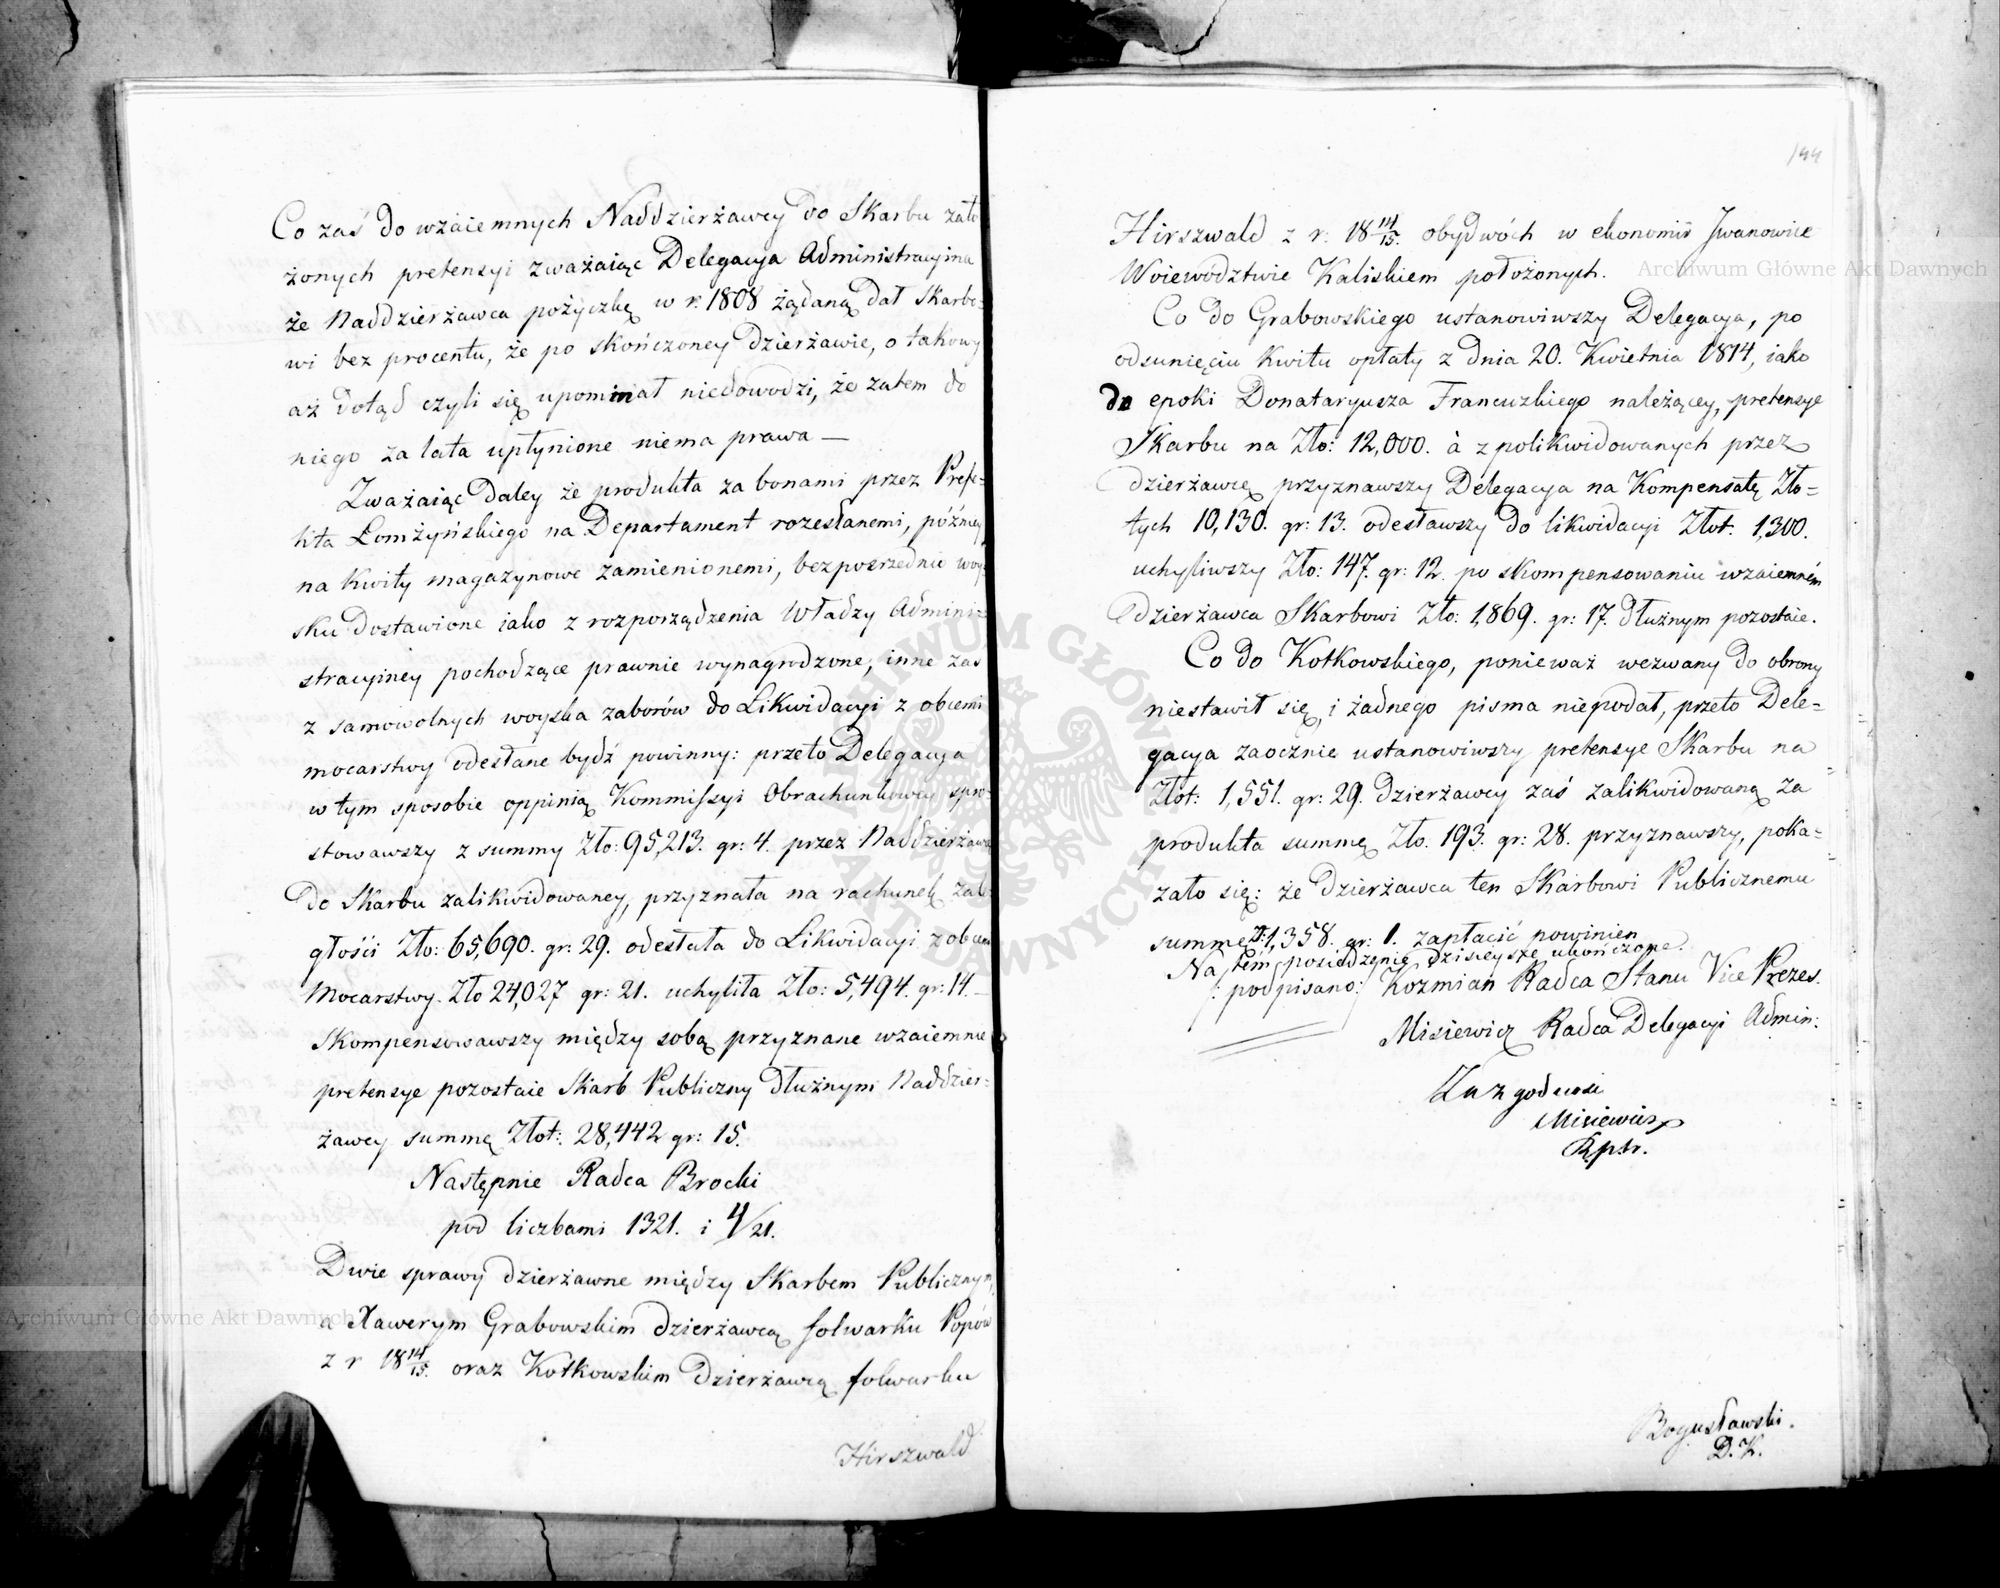 Co zaś do wzaiemnych Naddzierżawcy do Skarbu zało
żonych pretensyi zważaiąc Delegacya Administracyina
że Naddzierżawca pożyczkę w r. 1808 żądaną dał Skarbo-
wi bez procentu, że po skończoney dzierżawie, o takowy
aż dotąd czyli się upominał niedowodzi, że zatem do
niego za lata upłynione niema prawa —
Zważaiąc daley że produkta za bonami przez Prefe-
kta Łomżyńskiego na Departament rozesłanemi, późniey
na kwity magazynowe zamienionemi, bezpośrednio woy-
sku dostawione iako z rozporządzenia Władzy Adminis-
stracyiney pochodzące prawnie wynagrodzone, inne zaś
z samowolnych woyska zaborów do Likwidacyi z obcemi
mocarstwy odesłane bydź powinny: przeto Delegacya
w tym sposobie oppinią Kommissyi Obrachunkowey spro-
stowawszy z summy Zło: 95,213. gr: 4. przez Naddzierżawcę
do Skarbu zalikwidowaney, przyznała na rachunek zale-
głości Zło: 65,690. gr: 29. odesłała do Likwidacyi z obcemi
Mocarstwy. Zło 24,027 gr: 21. uchyliła Zło: 5,494. gr: 14. —
Skompensowawszy między sobą przyznane wzaiemnie
pretensye pozostaie Skarb Publiczny dłużnym Naddzier-
żawcy summę Złot: 28,442 gr: 15.
Następnie Radca Brocki
pod liczbami 1321. i 4/21.
Dwie sprawy dzierżawne między Skarbem Publicznym,
a Xawerym Grabowskim dzierżawcą folwarku Popów
z r 18 14/15. oraz Kotkowskim dzierżawcą folwarku
Hirszwald
144
Hirszwald z r: 18 14/15. obydwóch w ekonomii Jwanowice
Woiewodztwie Kaliskiem położonych.
Co do Grabowskiego ustanowiwszy Delegacya, po
odsunięciu kwitu opłaty z dnia 20. Kwietnia 1814, iako
do epoki Donataryusza Francuzkiego należącey, pretensye
Skarbu na Zło: 12,000. à z polikwidowanych przez
dzierżawcę przyznawszy Delegacya na Kompensatę Zło-
tych 10,130. gr: 13. odesławszy do likwidacyi Złot: 1,300.
uchyliwszy Zło: 147. gr: 12. po skompensowaniu wzaiemném
dzierżawca Skarbowi Zło: 1,869. gr: 17. dłużnym pozostaie.
Co do Kotkowskiego, ponieważ wezwany do obrony
niestawił się, i żadnego pisma niepodał, przeto Dele-
gacya zaocznie ustanowiwszy pretensye Skarbu na
Złot: 1,551. gr: 29. dzierżawcy zaś zalikwidowaną za
produkta summę Zło. 193. gr: 28. przyznawszy, poka-
zało się: że dzierżawca ten Skarbowi Publicznemu
summę Zł: 1,358. gr: 1. zapłacić powinien
Na tém posiedzenie dzisieysze ukończone.
/: podpisano:/ Kozmian Radca Stanu Vice Prezes.
Misiewicz Radca Delegacyi Admin:
Za zgodność
Misiewicz
Bogusławski.
D. K.
Archiwum Główne Akt Dawnych
Archiwum Główne Akt Dawnych
ARCHIWUM GŁÓWNE AKT DAWNYCH